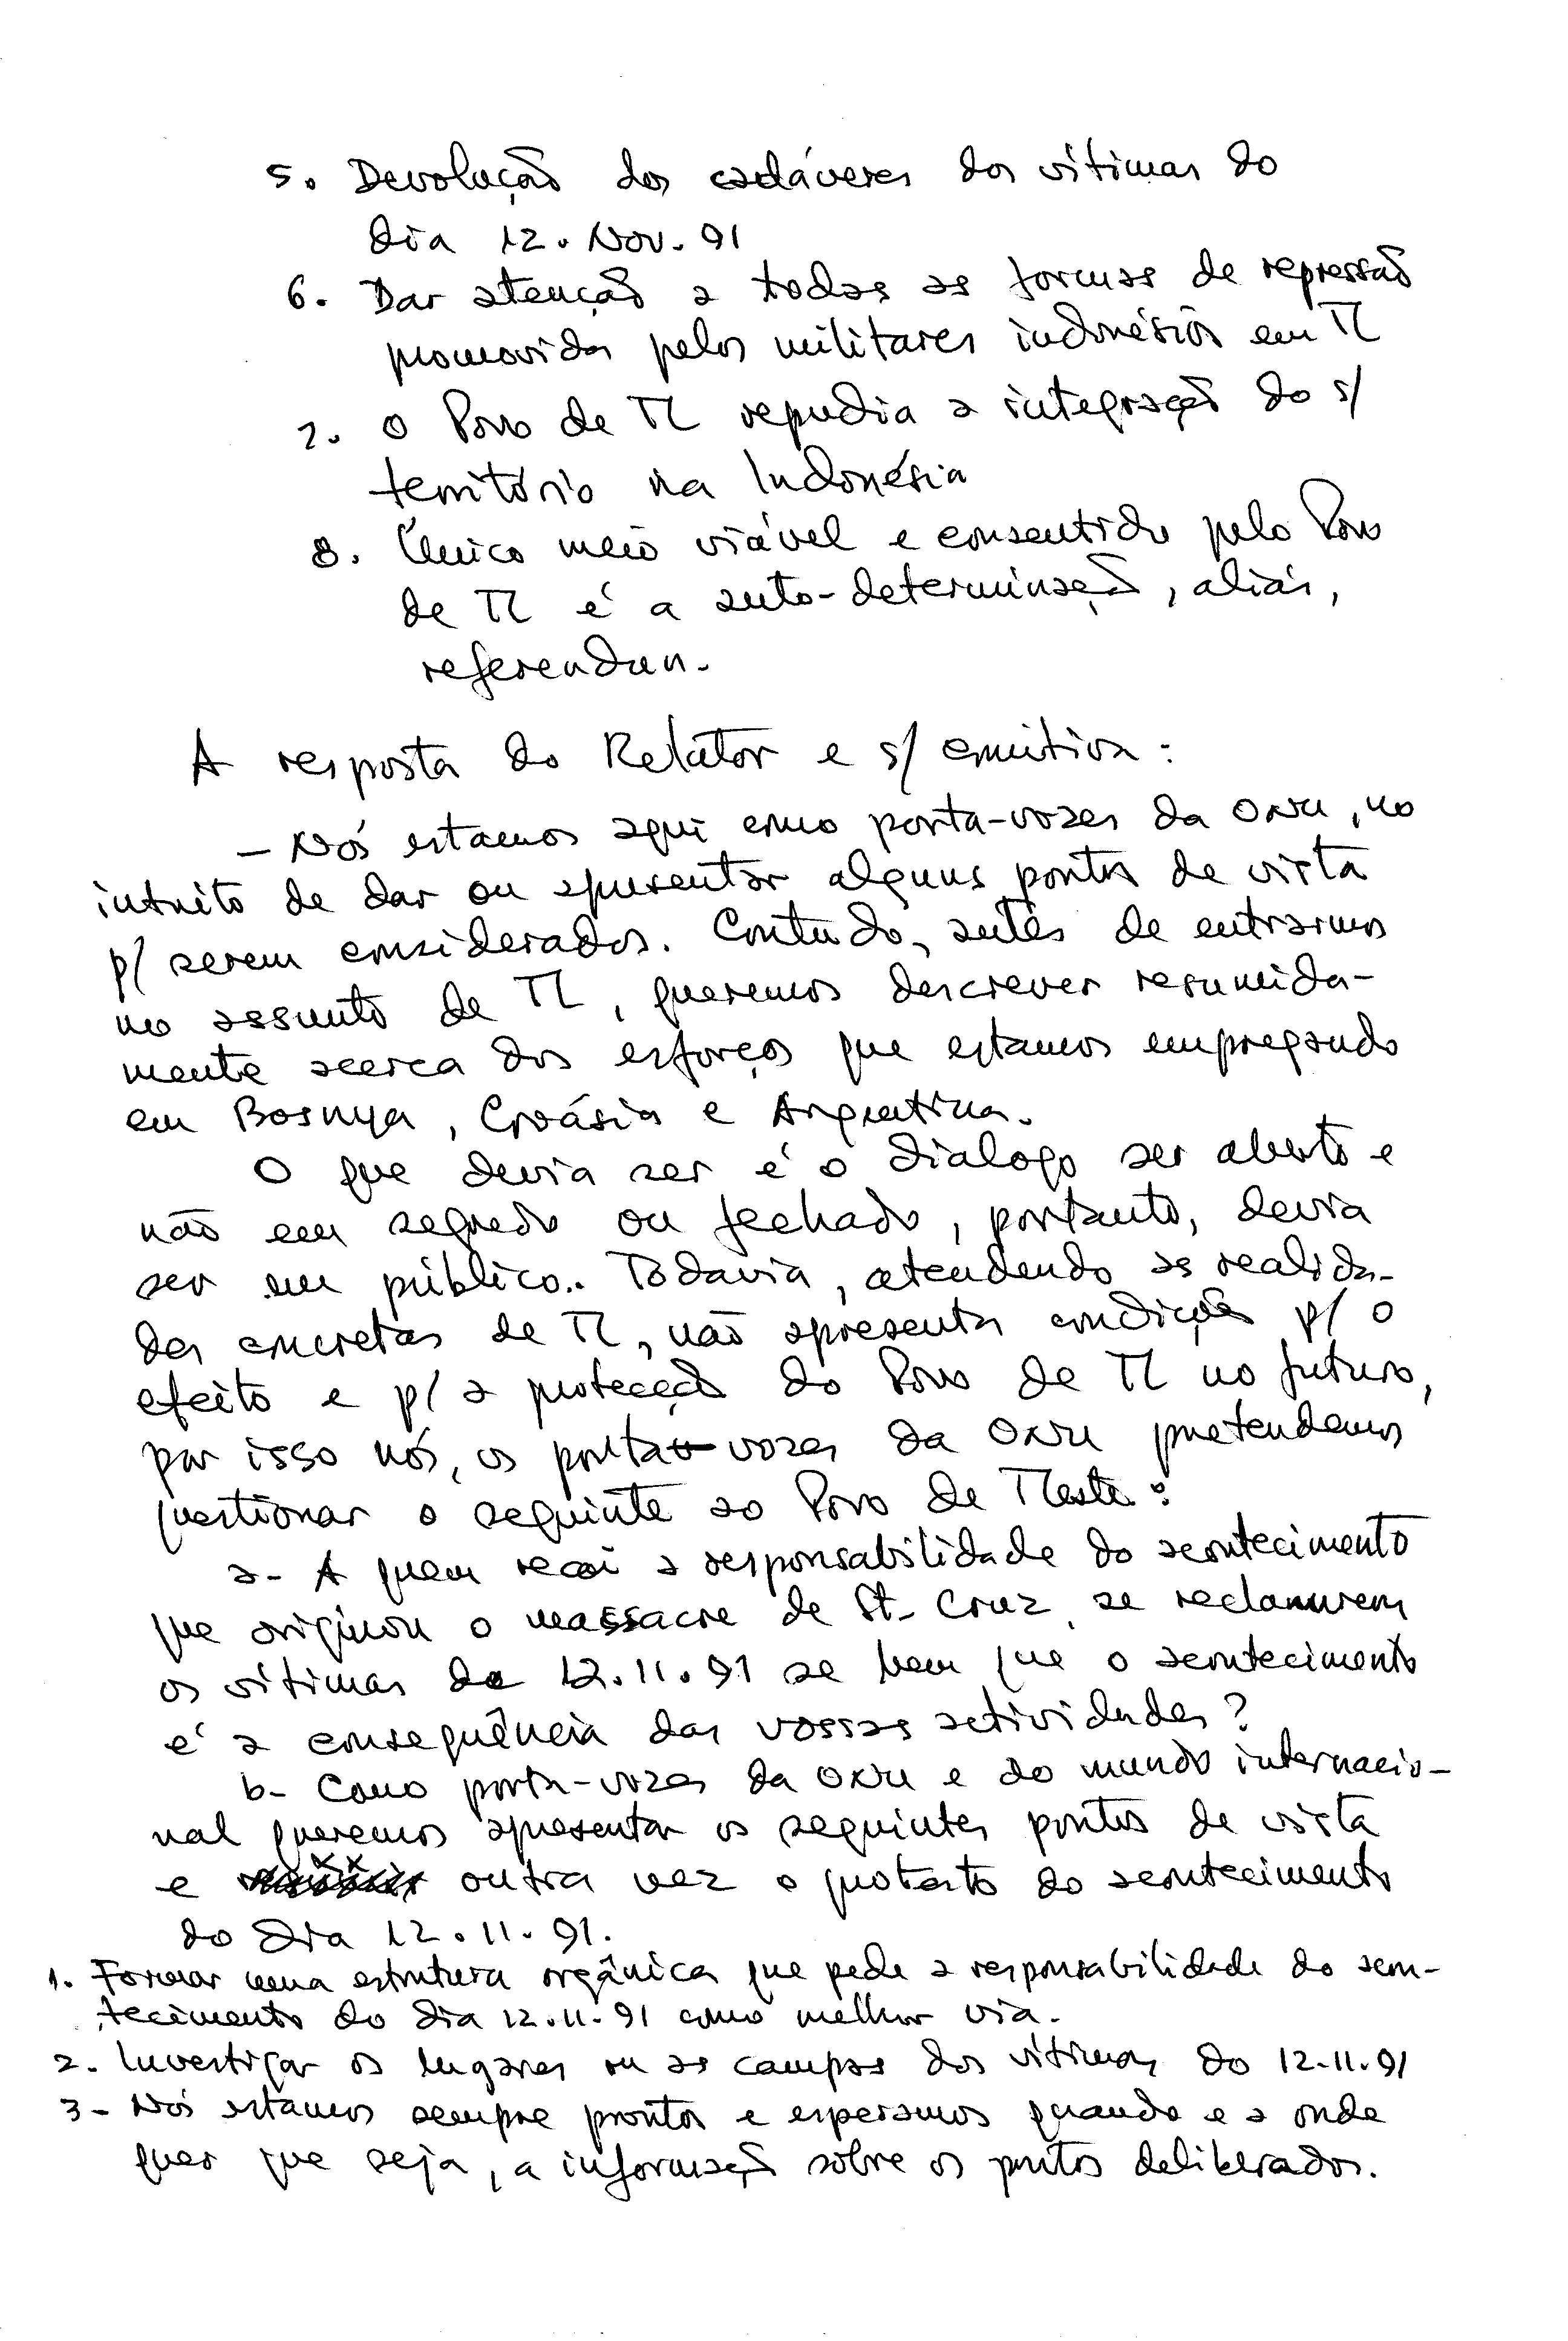 5. Devolução dos cadáveres dos vítimas do
dia 12. Nov. 91
6. Dar atenção a todas as formas de repressão
promovidas pelos militares indonésios em TL
7. O Povo de TL repudia a integração do s/
território na Indonésia
8. Único meio viável e consentido pelo Povo
de TL é a auto-determinação, aliás,
referendun.
A resposta do Relator e s/ comitiva:
- Nós estamos aqui como porta-vozes da ONU, no
intuito de dar ou apresentar alguns pontos de vista
p/ serem considerados. Contudo, antes de entrarmos
no assunto de TL, queremos descrever resumida-
mente acerca dos esforços que estamos empregando
em Bosnya, Croásia e Argentina.
O que devia ser é o dialogo ser aberto e
não em segredo ou fechado, portanto, devia
ser em público. Todavia, atendendo as realida-
des concretas de TL, não apresenta condições p/ o
efeito e p/ a protecção do Povo de TL no futuro,
por isso nós, os porta-vozes da ONU pretendemos
questionar o seguinte ao Povo de TLeste:
a- A quem recai a responsabilidade do acontecimento
que originou o massacre de St. Cruz, se reclamarem
os vítimas de 12.11.91 se bem que o acontecimento
é a consequência das vossas actividades?
b- Como porta-vozes da ONU e do mundo internacio-
nal queremos apresentar os seguintes pontos de vista
e outra vez o protesto do acontecimento
do dia 12.11.91.
1. Formar uma estrutura orgânica que pede a responsabilidade do acon-
tecimento do dia 12.11.91 como melhor via.
2. Investigar os lugares ou as campas dos vítimas do 12-11.91
3- Nós estamos sempre prontos e esperamos quando e a onde
quer que seja, a informação sôbre os pontos deliberados.